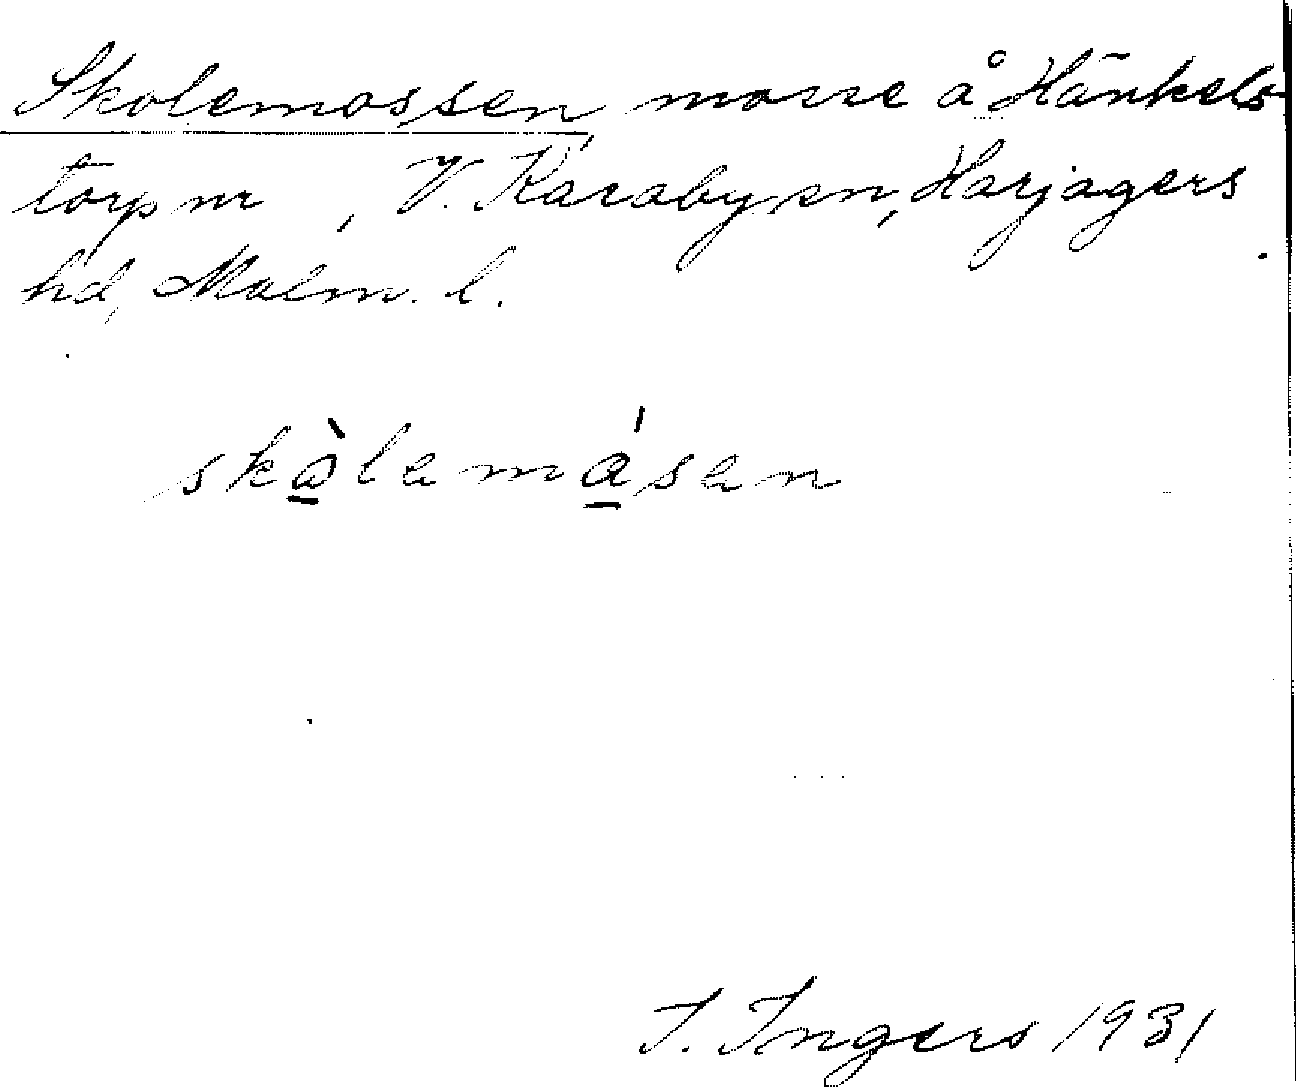 Skolemossen, mosse å Hänkels-
torp nr , V. Karaby sn, Harjagers
hd, Malm. l.
skà̱lemá̱sen
I. Ingers 1931